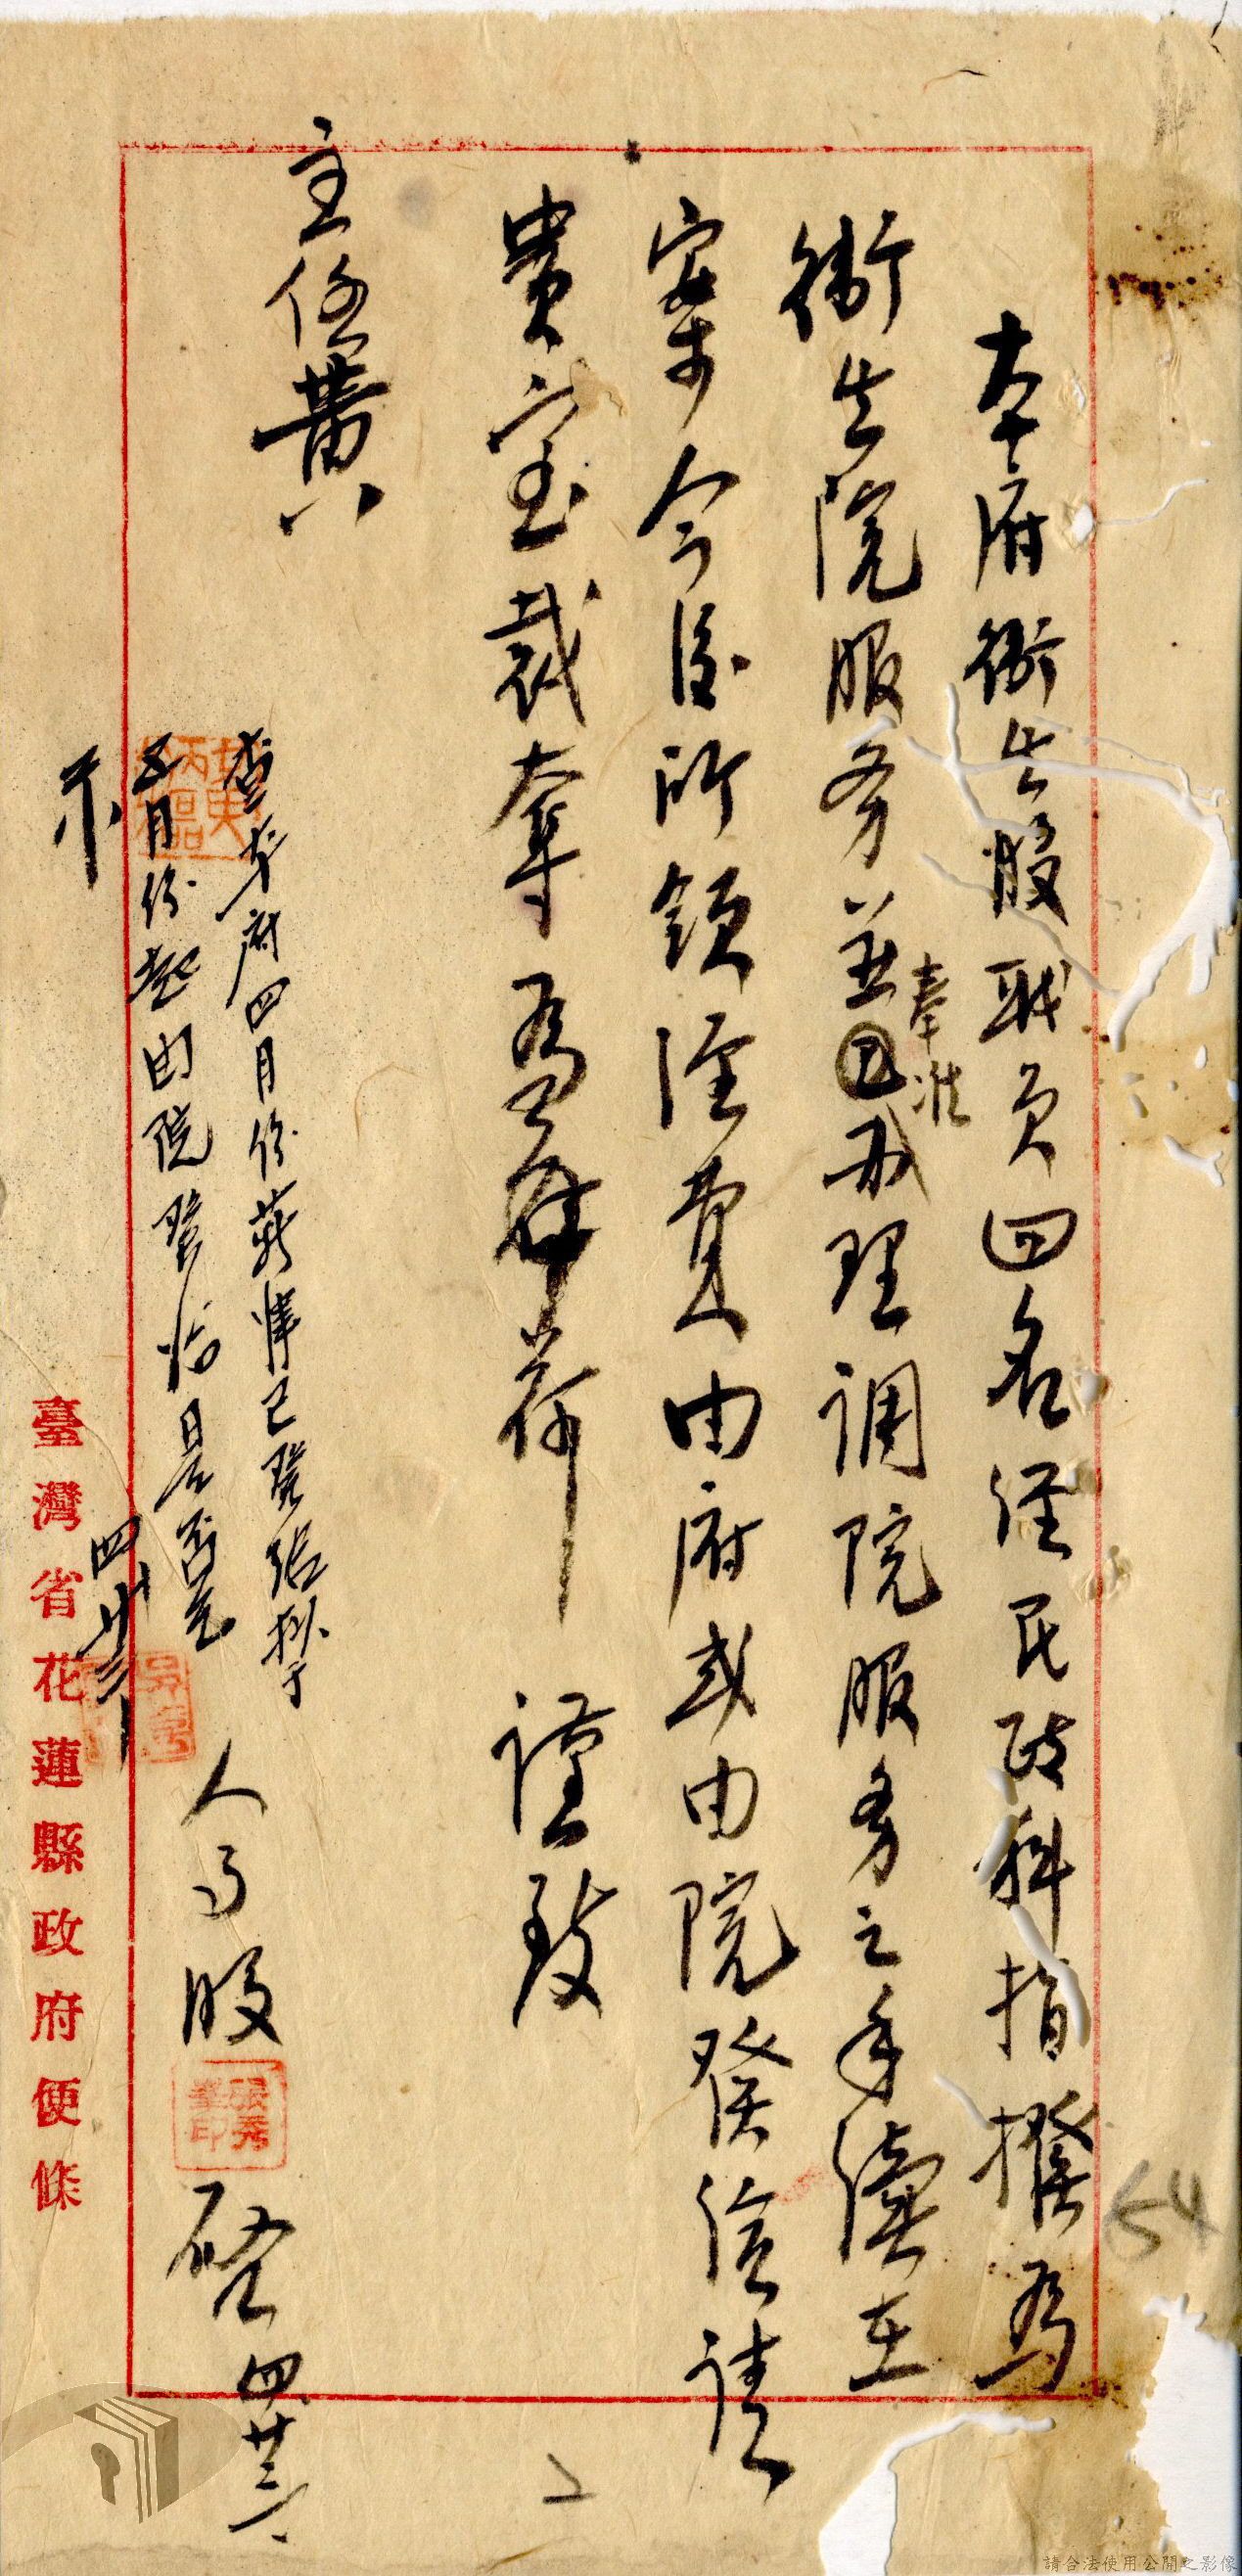 本府衛生股職員四名經民政科指撥為
衛生院服務並已奉准辦理調院服務之手續在
案今後所領經費由府或由院發給請
貴室裁奪為荷 謹致
主任黃
人事股 啓 四廿三
張秀華印
查本府四月份薪津已發給擬
五月份起由院發給是否乞
示
四廿三
黃丙
臺灣省花蓮縣政府便條
54
請合法使用公開之影像